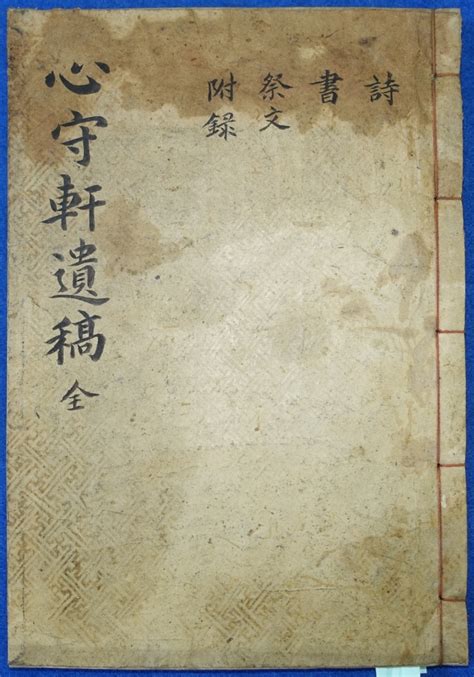 詩
書
祭文
附錄
心守軒遺稿 全